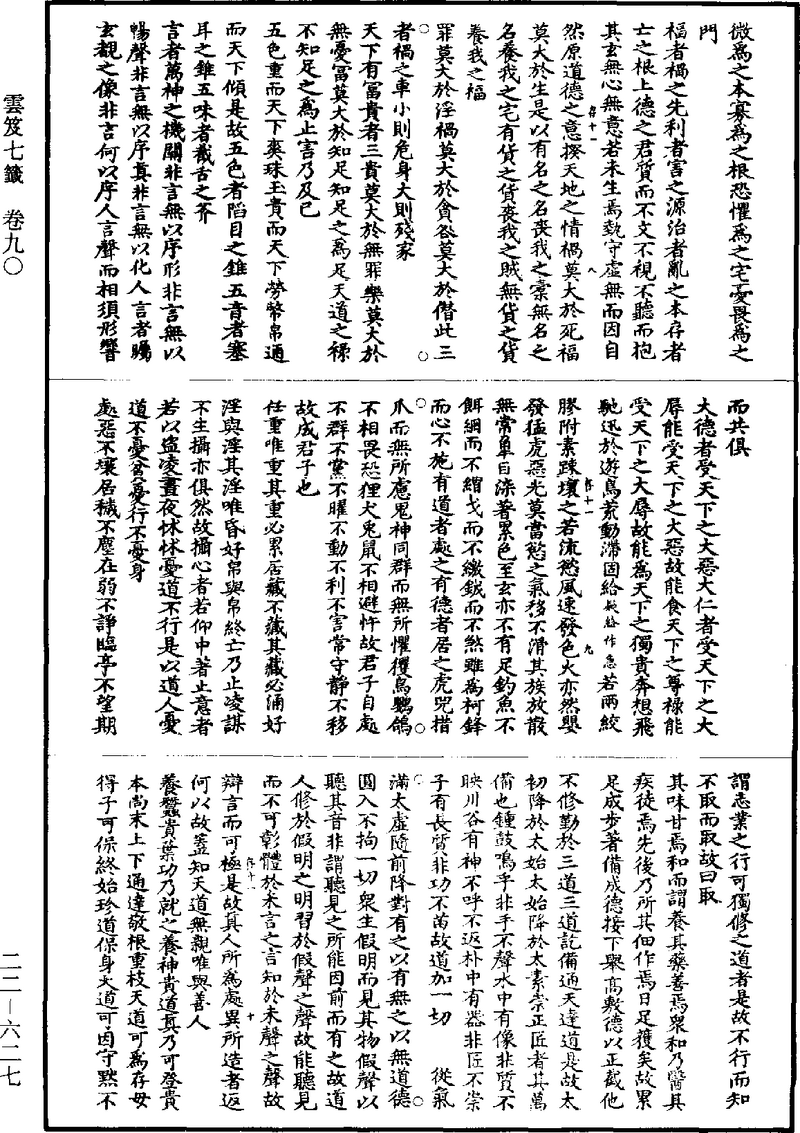 雲笈七籤　卷九〇
二二—六二七
微為之本寡為之根恐懼為之宅憂畏為之
門
福者禍之先利者害之源治者亂之本存者
亡之根上德之君質而不文不視不聽而抱
其玄無心無意若未生焉執守虛無而因自
然原道德之意揆天地之情禍莫大於死福
莫大於生是以有名之名喪我之橐無名之
名養我之宅有貨之貨喪我之賊無貨之貨
養我之福
罪莫大於淫禍莫大於貪咎莫大於僭此三
者禍之車小則危身大則殘家
天下有富貴者三貴莫大於無罪樂莫大於
無憂富莫大於知足知足之為足天道之祿
不知足之為止害乃及已
五色重而天下爽珠玉貴而天下勞幣帛通
而天下傾是故五色者陷目之錐五音者塞
耳之錐五味者截舌之斧
言者萬神之機關非言無以序形非言無以
暢聲非言無以序真非言無以化人言者矚
玄覩之像非言何以序人言聲而相須形響
而共俱
大德者受天下之大惡大仁者受天下之大
辱能受天下之大惡故能食天下之尊祿能
受天下之大辱故能為天下之獨貴奔想飛
馳迅於遊鳥荒動滯固給 若兩絞
膠附素疎壞之若流慾風速發色火亦然嬰
發猛虎惡光莫當慾之氣移不滑其族放散
無常皐白染著累色至玄亦不有足釣魚不
餌網而不綱弋而不繳鋭而不煞雖為柯鋒
而心不施有道者處之有德者居之虎兕措
爪而無所慮鬼神同群而無所懼玃鳥鸚鴿
不相畏恐狸犬兎鼠不相避忤故君子自處
不群不黨不曜不動不利不害常守靜不移
故成君子也
任重唯重其重必累居藏不藏其藏必涌好
淫與淫其淫唯昏好帛與帛終亡乃止凌謀
不生攝亦俱然故攝心者若仰中著止意者
若以盜凌晝夜怵怵憂道不行是以道人憂
道不憂貧憂行不憂身
處惡不壞居穢不塵在弱不諍臨亭不望期
謂志業之行可獨修之道者是故不行而知
不取而取故曰取
其味甘焉和而謂養其藥善焉衆和乃醫具
疾徒焉先後乃所其佃作焉日足獲矣故累
足成步著備成德接下舉高敷德以正截他
不修勤於三道三道訖備通天達道是故太
初降於太始太始降於太素崇正匠者其萬
備也鍾鼓鳴乎非手不聲水中有像非質不
映川谷有神不呼不返朴中有器非匠不崇
子有長質非功不茁故道加一切　從氣
滿太虛隨前降對有之以有無之以無道德
圓入不拘一切衆生假明而見其物假聲以
聽其音非謂聽見之所能因前而有之故道
人修於假明之明習於假聲之聲故能聽見
而不可彰體於未言之言知於未聲之聲故
辯言而可極是故真人所為處異所造者返
何以故蓋知天道無親唯與善人
養蠶貴葉功乃就之養神貴道真乃可登貴
本尚末上下通達敬根重枝天道可為存母
得子可保終始珍道保身大道可因守默不